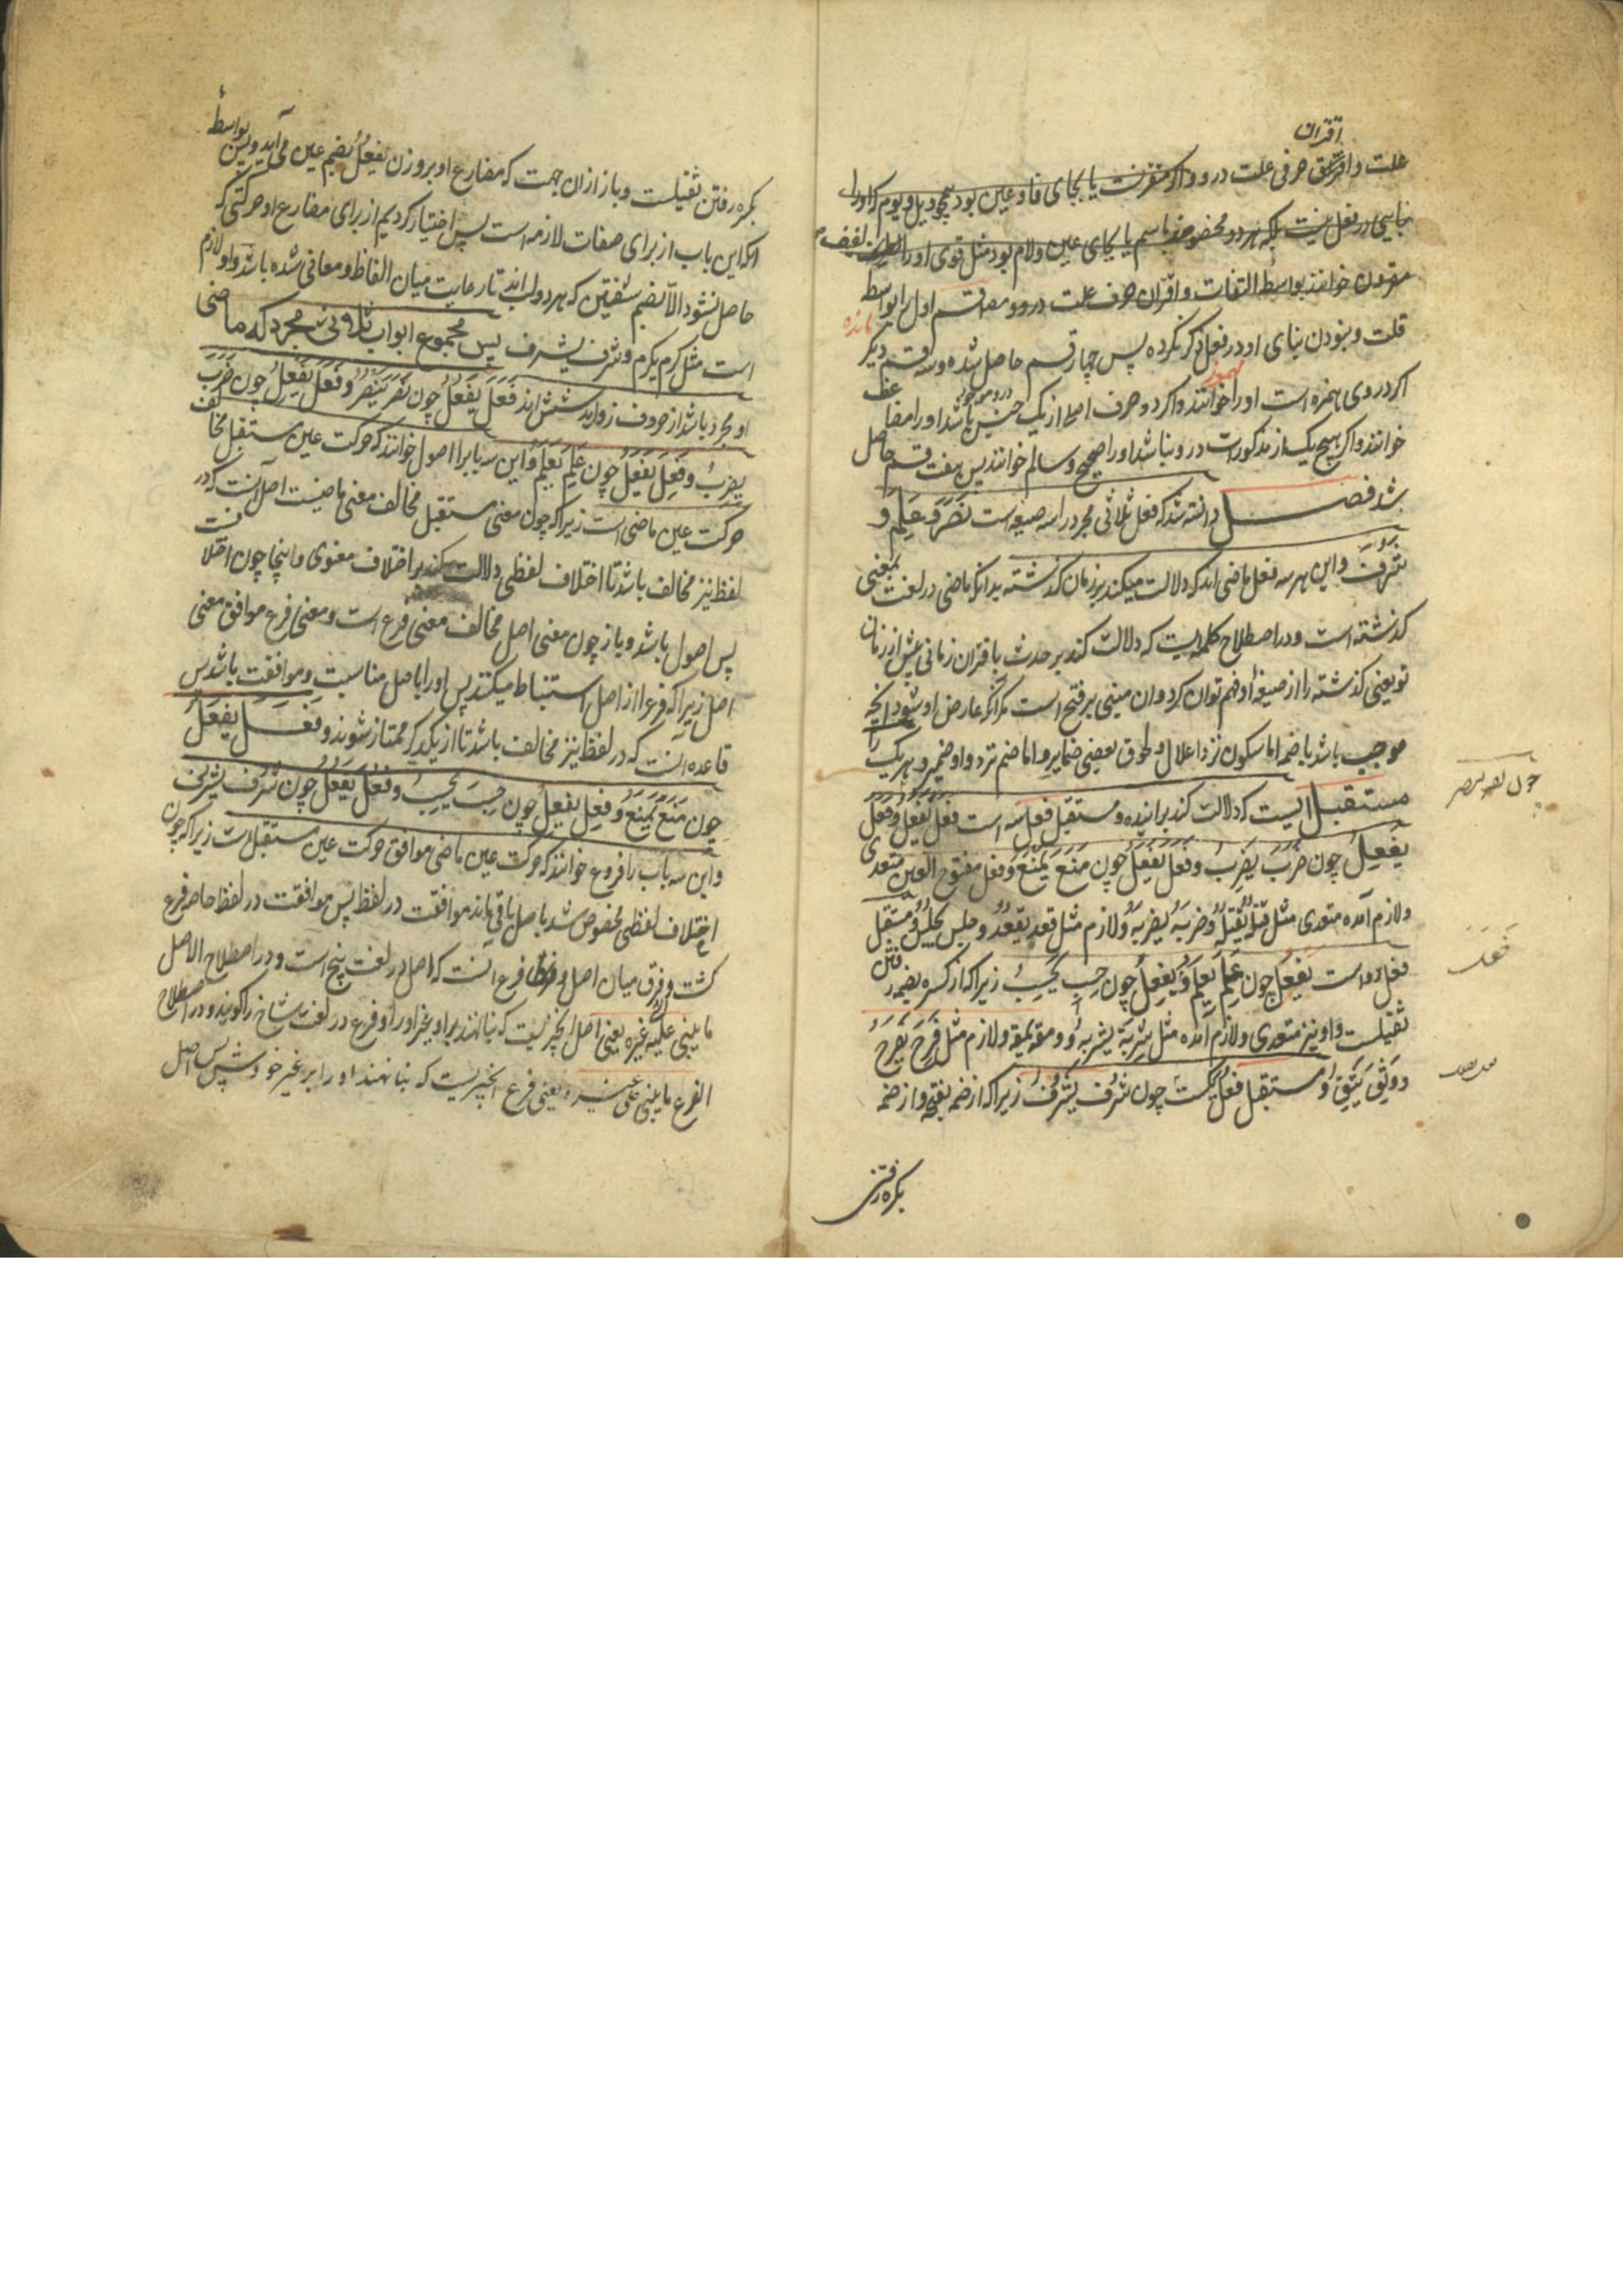 اقتران
علت و افتراق حرفی علت درو و اگر مقرنست یا بجای فا و عین بود همچو ویل و یوم که او را
بنایی در فعل نیست بلکه هر دو مخصوصند باسم یا بجای عین و لام بود مثل قوی او را لفیف
مقرون خوانند بواسطه التفات و اقتران حرف علت درو و مصنف قسم اول را بواسطه
قلت و نبودن بنای او در فعل ذکر نکرده پس چهار قسم حاصل شده و سه قسم دیگر
مانده
اگر در وی همزه است او را مهموز خوانند و اگر دو حرف اصلی از یک جنس باشد او را مضاعف
خوانند و اگر هیچ یک از مذکورات درو نباشد او را صحیح و سالم خوانند پس هفت قسم حاصل
شد فصل دانسته شد که فعل ثلاثی مجرد را سه صیغه است نَصَرَ و عَلِمَ و
شَرُفَ و این هر سه فعل ماضی اند که دلالت میکند بر زمان گذشته بدانکه ماضی در لغت بمعنی
گذشته است و در اصطلاح کلمه ایست که دلالت کند بر حدث باقتران زمانی پیش از زمان
تو یعنی گذشته را از صیغهٔ او فهم توان کرد و ان مبنی بر فتح است مگر انکه عارض او شود انچه
موجب باشد یا ضم اما سکون نزد اعلال و لحوق بعضی ضمایر و اما ضم نزد واو ضمیر و هر یک را
مستقبل ایست که دلالت کند بر اینده و مستقبل فعل سه است فعل یفعل و فعل
چون نصر ینصر
یفعِل چون ضَرَبَ یضرِبُ و فعل یفعل چون مَنَعَ یَمنَعُ و فعل مفتوح العین متعدی
و لازم آمده متعدی مثل قتله یقتله و ضربه یضربه و لازم مثل قعد یقعد و جلس یجلس و مستقبل
فَعِلَ
فعل دو است یفعَل چون عَلِمَ یَعلَم و یفعِل چون حسب یحسِبُ زیرا که از کسره بضمه رفتن
ثقیلست و او نیز متعدی و لازم آمده مثل شربه یشربه و ومقه یمقه و لازم مثل فَرِحَ یَفرَحُ
و وَثِقَ یَثِقُ و مستقبل فعُل یکیست چون شَرُفَ یَشرُفُ زیرا که از ضمه بفتحه و از ضمه
بکسره رفتن
بکسره رفتن ثقیلست و باز ازان جهت که مضارع او بر وزن یفعُلُ بضم عین می آید و بس بواسطهٔ
انکه این باب از برای صفات لازمه است پس اختیار کردیم از برای مضارع او حرکتی که
حاصل نشود الا بضم شفتین که هر دو لب اند تا رعایت میان الفاظ و معانی شده باشد و او لازم
است مثل کرم یکرم و شرف یشرف پس مجموع ابواب ثلاثی مجرد که ماضی
او مجرد باشد از حروف زواید شش اند فَعَلَ یَفعُلُ چون نَصَرَ یَنصُرُ و فَعَلَ یَفعِلُ چون ضَرَبَ
یضرِبُ و فَعِلَ یفعَلُ چون عَلِمَ یَعلَمُ و این سه باب را اصول خوانند که حرکت عین مستقبل مخالف
حرکت عین ماضی است زیرا که چون معنی مستقبل مخالف معنی ماضیست اصل آنست که در
لفظ نیز مخالف باشد تا اختلاف لفظی دلالت کند بر اختلاف معنوی و اینجا چون اختلافست
پس اصول باشد و باز چون معنی اصل مخالف معنی فرع است و معنی فرع موافق معنی
اصل زیرا که فرع را از اصل استنباط میکنند پس او را با اصل مناسبت و موافقت باشد پس
قاعده انست که در لفظ نیز مخالف باشد تا از یکدیگر ممتاز شوند و فعل یفعل
چون مَنَعَ یَمنَعُ و فَعِلَ یَفعِلُ چون حسِبَ یحسِبُ و فَعُلَ یَفعُلُ چون شَرُفَ یشرُفُ
و این سه باب را فروع خوانند که حرکت عین ماضی موافق حرکت عین مستقبلست زیرا که چون
اختلاف لفظی مخصوص شد باصل باقی ماند موافقت در لفظ پس موافقت در لفظ خاصهٔ فرع
گشت و فرق میان اصل و فرع آنست که اصل در لغت بیخ است و در اصطلاح الاصل
ما یبنی علیه غیره یعنی اصل انچیزیست که بنا نهند برو چیز او را و فرع در لغت شاخ را گویند و در اصطلاح
الفرع ما یبنی علی غیره یعنی فرع انچیزیست که بنا نهند او را بر غیر خودش پس اصل